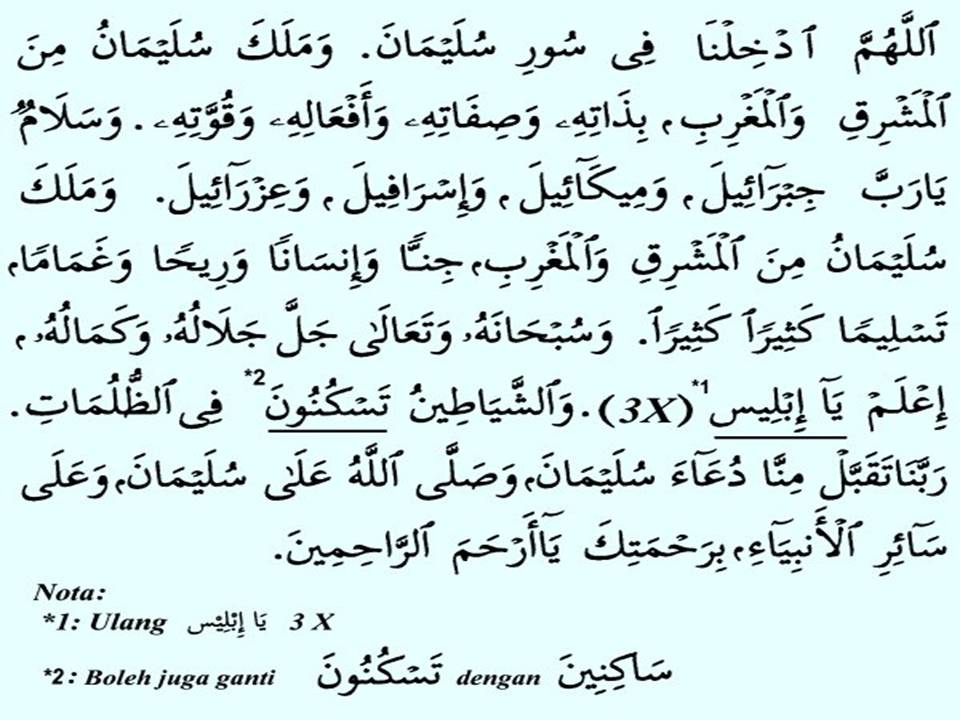 ٱللَّهُمَّ ٱدْخِلْنَا فِى سُورِ سُلَيْمَانَ. وَمَلَكَ سُلَيْمَانُ مِنَ
ٱلْمَشْرِقِ وَٱلْمَغْرِبِ، بِذَاتِهِۦ وَصِفَاتِهِۦ وَأَفْعَالِهِۦ وَقُوَّتِهِۦ. وَسَلَامٌ
يَارَبَّ جِبْرَآئِيلَ، وَمِيكَآئِيلَ، وَإِسْرَافِيلَ، وَعِزْرَآئِيلَ. وَمَلَكَ
سُلَيْمَانُ مِنَ ٱلْمَشْرِقِ وَٱلْمَغْرِبِ، جِنًّا وَإِنسَانًا وَرِيحًا وَغَمَامًا،
تَسْلِيمًا كَثِيرًا كَثِيرًا. وَسُبْحَانَهُۥ وَتَعَالَىٰ جَلَّ جَلَالُهُۥ وَكَمَالُهُۥ،
إِعْلَمْ يَآ إِبْلِيس*1 (3X). وَٱلشَّيَاطِينُ تَسْكُنُونَ*2 فِى ٱلظُّلُمَاتِ.
رَبَّنَاتَقَبَّلْ مِنَّا دُعَآءَ سُلَيْمَانَ، وَصَلَّى ٱللَّهُ عَلَىٰ سُلَيْمَانَ، وَعَلَى
سَآئِرِ ٱلْأَنبِيَآءِ، بِرَحْمَتِكَ يَآأَرْحَمَ ٱلرَّاحِمِينَ.
Nota:
*1: Ulang يَا إِبْلِيْس 3 X
*2: Boleh juga ganti تَسْكُنُونَ dengan سَاكِنِينَ